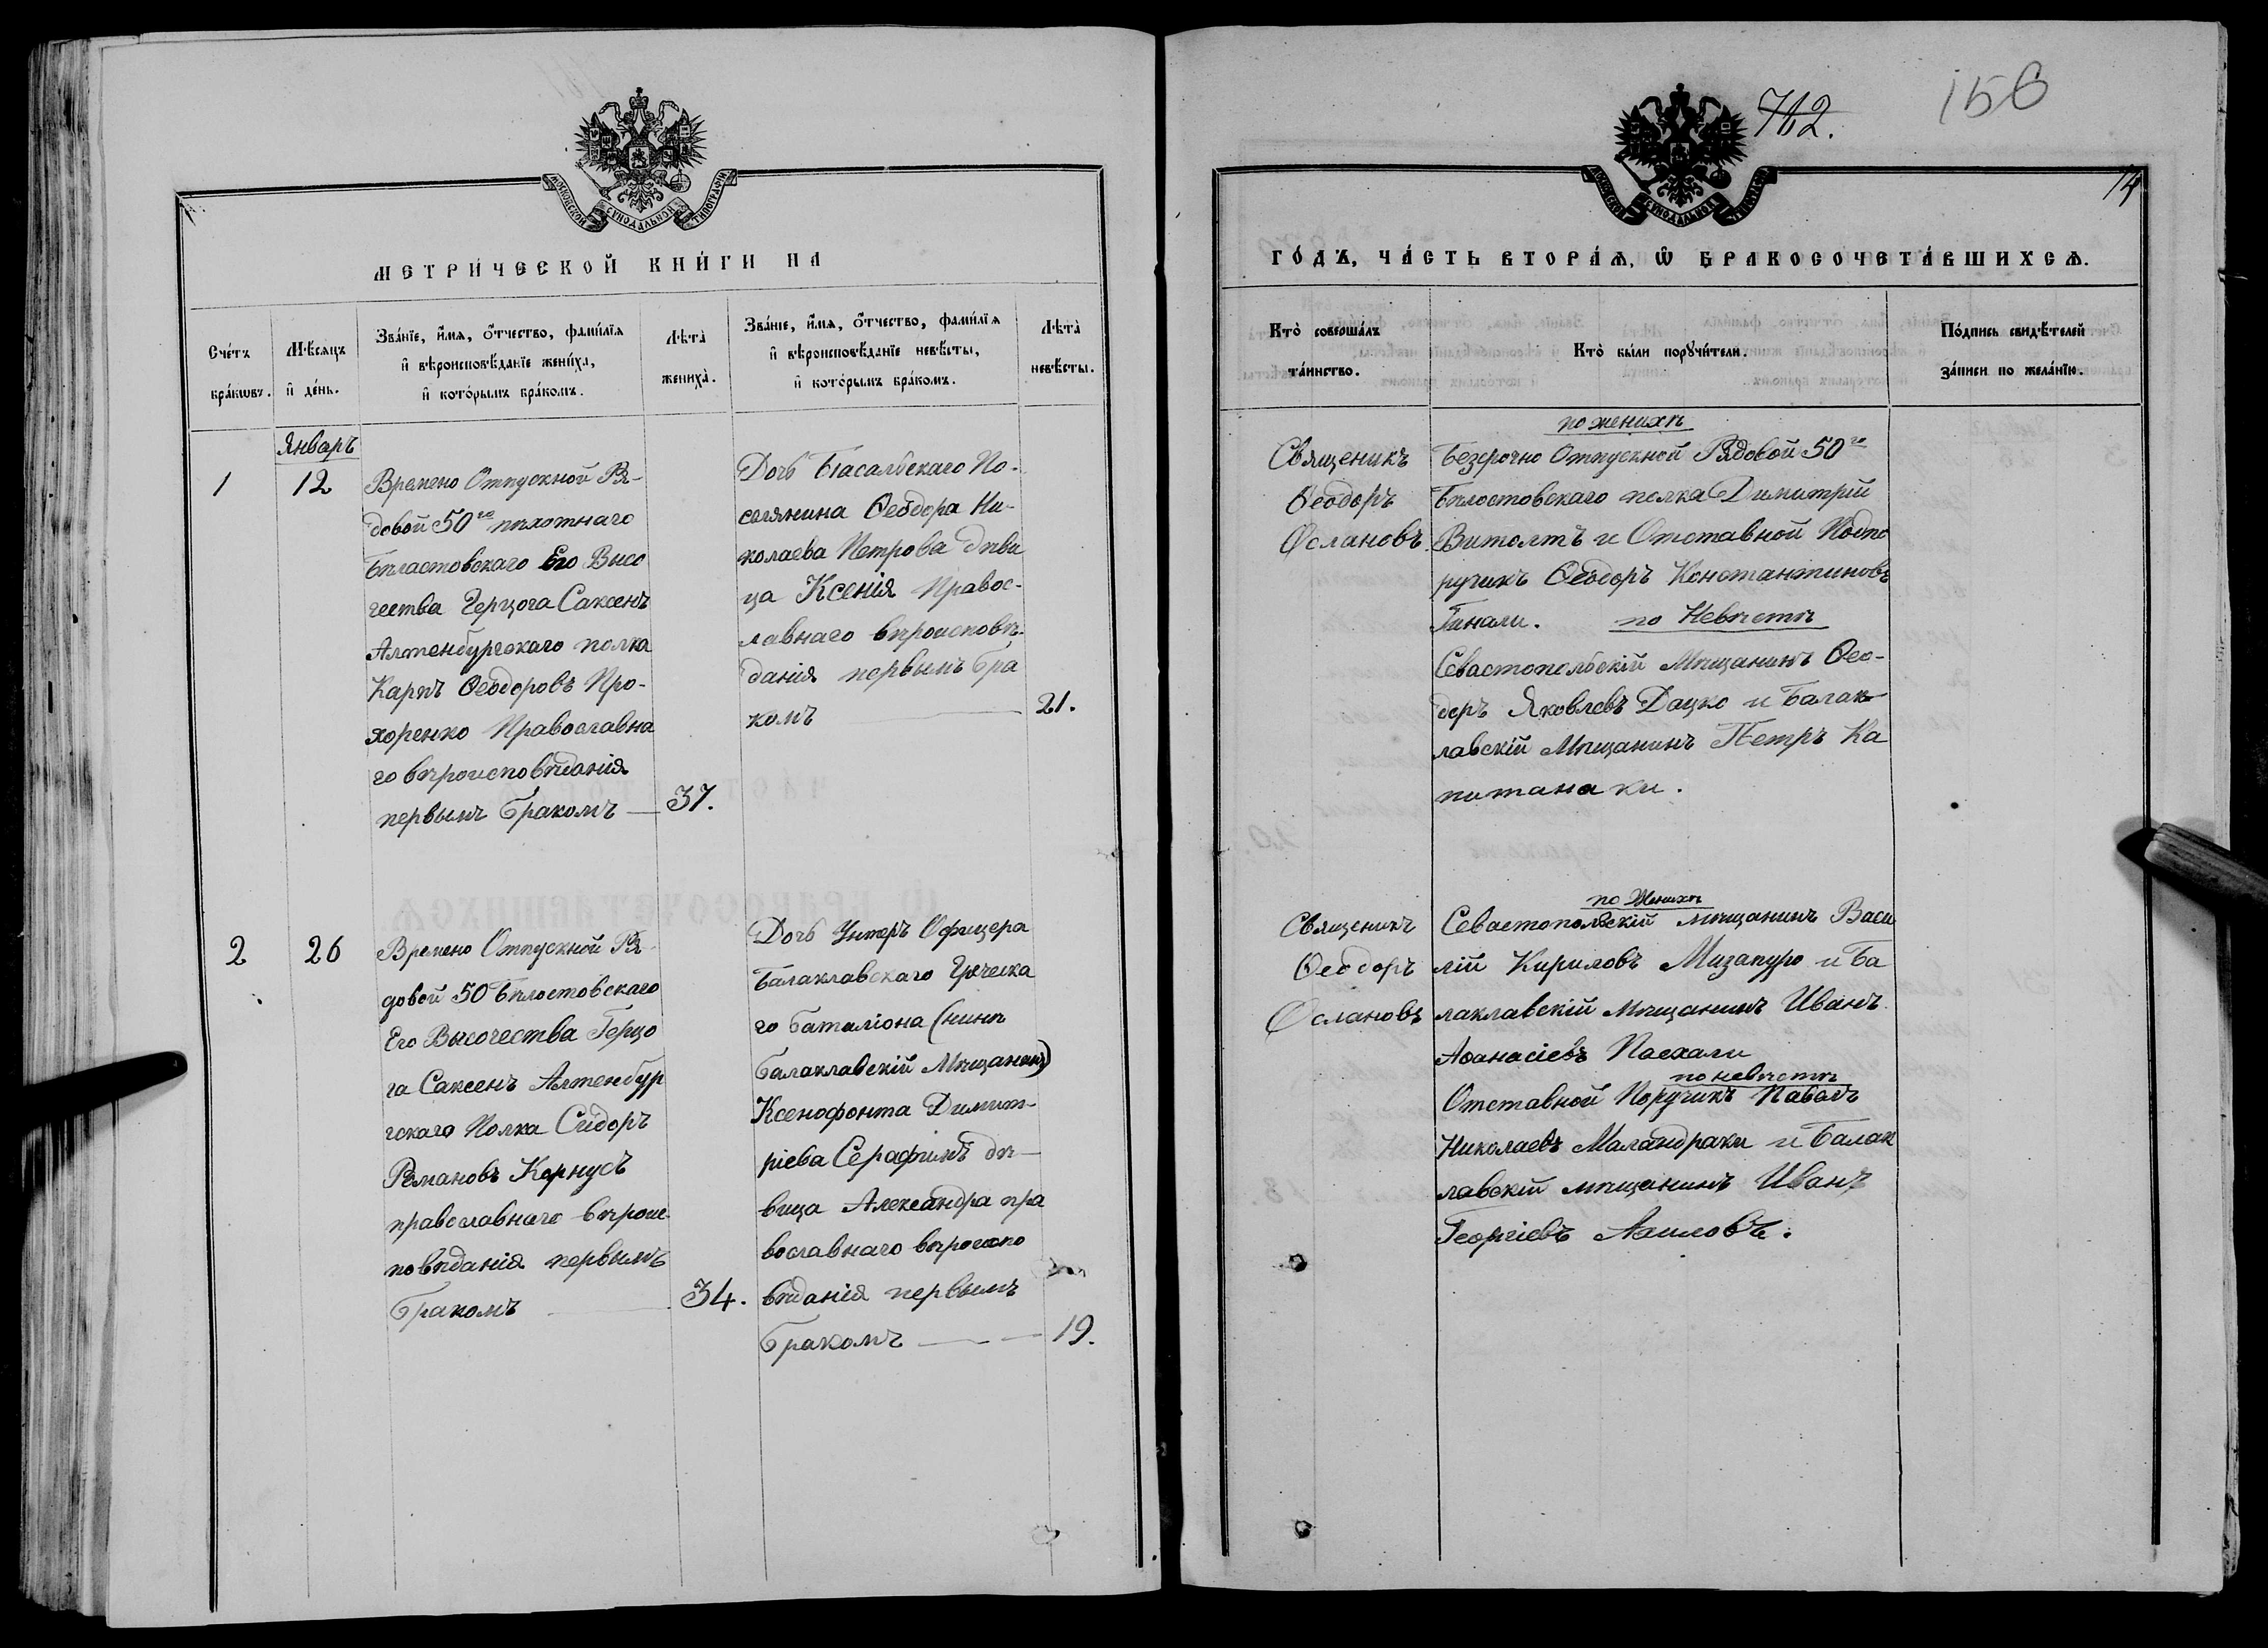 МОСКОВСКОЙ СѴНОДАЛЬНОЙ ТИПОГРАФІИ
МЕТРИ́ЧЕСКОЙ КНИ́ГИ НА
Сче́тъ бра́ковъ.
Мѣ́сяцъ и҆ де́нь.
Зва́нїе, и҆́мя, ѻ҆́тчество, фами́лїя
и҆ вѣроисповѣ́данїе жениха̀,
и҆ кото́рымъ бра́комъ.
Лѣ́та жениха̀.
Зва́нїе, и҆́мя, ѻ҆́тчество, фами́лїя
и҆ вѣроисповѣ́данїе невѣ́сты,
и҆ кото́рымъ бра́комъ.
Лѣ́та невѣ́сты.
Январь
1
12
Времено Отпускной Ря-
довой 50го пѣхотнаго
Бѣластовскаго Его Высо
чества Герцога Саксенъ
Алтенбургскаго полка
Карпъ Ѳеодоровъ Про-
хоренко Православна
го вѣроисповѣданія
первымъ бракомъ — 37.
Дочь Біасальскаго По-
селянина Ѳеодора Ни-
колаева Петрова дѣви
ца Ксенія Правос-
лавнаго вѣроисповѣ-
данія первымъ бра
комъ — 21.
2
26
Времено Отпускной Ря-
довой 50 Бѣлостовскаго
Его Высочества Герцо
га Саксенъ Алтенбур
гскаго Полка Сидоръ
Романовъ Корнусъ
православнаго вѣроис-
повѣданія первымъ
бракомъ — 34.
Дочь Унтеръ Офицера
Балаклавскаго Греческа
го баталіона (нинѣ
Балаклавскій Мѣщанинъ)
Ксенофонта Димит-
ріева Серафимъ дѣ-
вица Александра пра
вославнаго вѣроиспо
вѣданія первымъ
бракомъ — — 19.
712.
156
14
МОСКОВСКОЙ СѴНОДАЛЬНОЙ ТИПОГРАФІИ
ГО́ДЪ, ЧА́СТЬ ВТОРА́Я, Ѽ БРАКОСОЧЕТА́ВШИХСЯ.
Кто̀ соверша́лъ
та́инство.
Кто̀ бы́ли порꙋчи́тели.
По́дпись свидѣ́телей
за́писи по жела́нїю.
Священикъ
Ѳеодоръ
Ослановъ
по женихѣ
Безсрочно Отпускной Рядовой 50го
Бѣлостовскаго полка Димитрій
Витолтъ и Отставной Подпо
ручикъ Ѳеодоръ Константиновъ
Гинали. по Невѣстѣ
Севастопольскій Мѣщанинъ Ѳео-
доръ Яковлевъ Дацко и Балак-
лавскій Мѣщанинъ Петръ Ка
питанаки.
Священикъ
Ѳеодоръ
Ослановъ
по Женихѣ
Севастопольскій мѣщанинъ Васи
лій Кириловъ Мизапуро и Ба
лаклавскій мѣщанинъ Иванъ
Аѳанасіевъ Пасхали
по невѣстѣ
Отставной Поручикъ Павелъ
Николаевъ Маландраки и Балак
лавскій мѣщанинъ Иванъ
Георгіевъ Аслловъ.